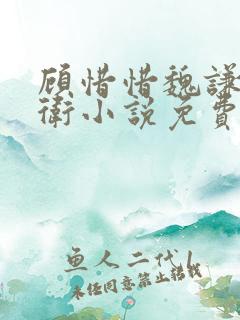 顾惜惜魏谦
衛小说免费
鱼人二代 |
未经同意禁止转载